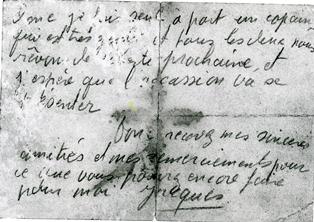 je suis seul à part un copain
qui est très gentil et tous les deux nous
rêvons de prochaine et
j'espère que l'occassion va se
présenter
Donc recevez mes sincères
amitiés et mes remerciements pour
ce que vous pourrez encore faire
pour moi. Jacques